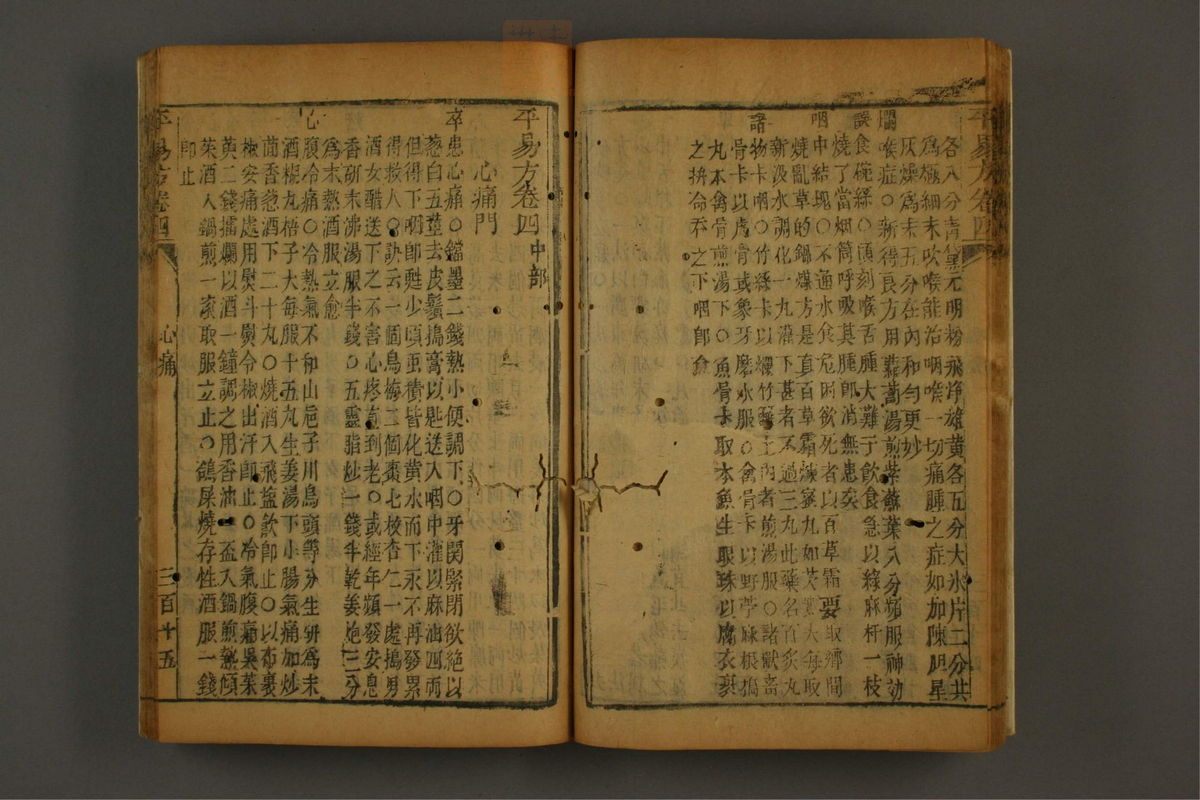 平易方卷四
各八分青黛元明粉飛净雄黄各五分大氷片二分共
爲極細末吹喉能治咽喉一切痛腫之症如加陳胆星
灰燥爲末五分在內和勻更妙
爛喉症○新得良方用蘿蔔湯煎紫蘇葉八分頻服神効
誤食碗綠○頃刻喉舌腫大難于飲食急以綠麻杆一枝
燒了當烟筒呼吸其腫卽消無患矣
咽中結塊○不通水食危困欲死者以百草霜要取鄉間
燒亂草的鍋煤方是真百草霜煉蜜丸如芡實大每取
新汲水調化一丸灌下甚者不過三丸此藥名百炙丸
諸物卡咽○竹綠卡以爛竹 上內者煎湯服○諸獸畜
骨卡以虎骨或象牙磨水服○禽骨卡以野苧麻根搗
丸本禽骨煎湯下○魚骨卡取本魚生眼珠以腐衣裹
之拚命吞之下咽卽愈
平易方卷四 中部
心痛門
卒患心痛○鐺墨二錢熟小便調下○牙関緊閉欲絶以
葱白五莖去皮鬚搗膏以匙送入咽中灌以麻油四兩
但得下咽卽甦少頃虫積皆化黄水而下永不再發累
得救人○訣云一個烏梅二個棗七枚杏仁一處搗男
酒女醋送下之不害心疼直到老○或經年頻發安息
香硏末沸湯服半錢○五靈脂炒一錢半乾姜炮三分
爲末熱酒服立愈
心腹冷痛○冷熱氣不和山梔子川烏頭等分生研爲末
酒糊丸梧子大每服十五丸生姜湯下小腸氣痛加炒
茴香葱酒下二十丸○燒酒入飛塩飲卽止○以布裹
椒安痛處用熨斗熨令椒出汗卽止○冷氣腹痛吳茱
萸二錢擂爛以酒一鐘調之用香油一盃入鍋煎熱傾
茱酒入鍋煎一滾取服立止○鴿屎燒存性酒服一錢
卽止
平易方卷四
心痛
三百十五